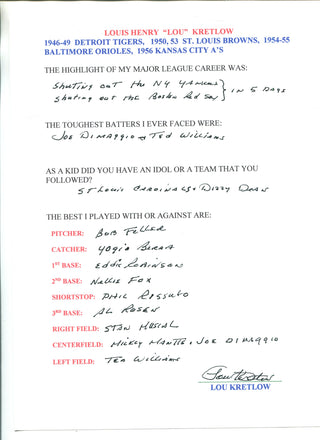 LOUIS HENRY "LOU" KRETLOW
1946-49 DETROIT TIGERS, 1950, 53 ST. LOUIS BROWNS, 1954-55
BALTIMORE ORIOLES, 1956 KANSAS CITY A'S
THE HIGHLIGHT OF MY MAJOR LEAGUE CAREER WAS:
Shutting out the NY Yankees
Shuting out the Boston Red Sox } in 5 days
THE TOUGHEST BATTERS I EVER FACED WERE:
Joe Dimaggio & Ted Williams
AS A KID DID YOU HAVE AN IDOL OR A TEAM THAT YOU
FOLLOWED?
St Louis Cardinals - Dizzy Dean
THE BEST I PLAYED WITH OR AGAINST ARE:
PITCHER: Bob Feller
CATCHER: Yogi Berra
1ST BASE: Eddie Robinson
2ND BASE: Nellie Fox
SHORTSTOP: Phil Rossuto
3RD BASE: Al Rosen
RIGHT FIELD: Stan Musial
CENTERFIELD: Mickey Mantle & Joe Dimaggio
LEFT FIELD: Ted Williams
Lou Kretlow
LOU KRETLOW